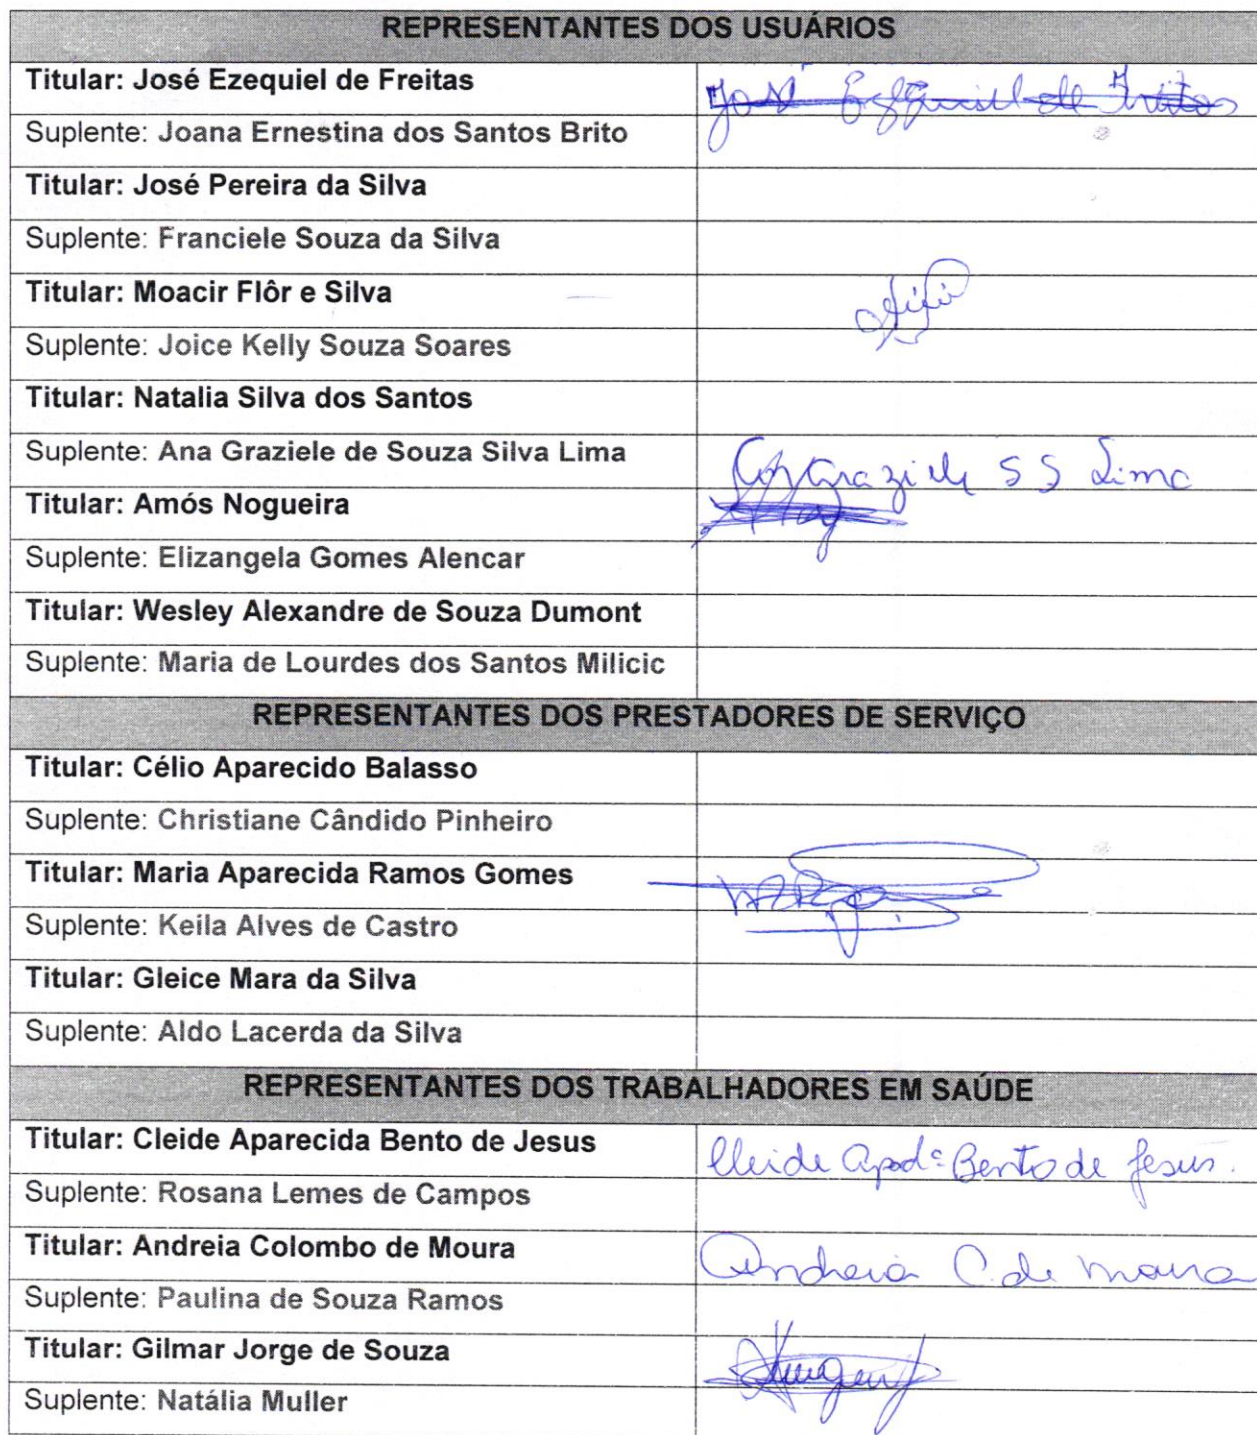 REPRESENTANTES DOS USUÁRIOS
Titular: José Ezequiel de Freitas José Ezequiel de Freitas
Suplente: Joana Ernestina dos Santos Brito
Titular: José Pereira da Silva
Suplente: Franciele Souza da Silva
Titular: Moacir Flôr e Silva
Suplente: Joice Kelly Souza Soares
Titular: Natalia Silva dos Santos
Suplente: Ana Graziele de Souza Silva Lima Graziele S S Lima
Titular: Amós Nogueira
Suplente: Elizangela Gomes Alencar
Titular: Wesley Alexandre de Souza Dumont
Suplente: Maria de Lourdes dos Santos Milicic
REPRESENTANTES DOS PRESTADORES DE SERVIÇO
Titular: Célio Aparecido Balasso
Suplente: Christiane Cândido Pinheiro
Titular: Maria Aparecida Ramos Gomes
Suplente: Keila Alves de Castro
Titular: Gleice Mara da Silva
Suplente: Aldo Lacerda da Silva
REPRESENTANTES DOS TRABALHADORES EM SAÚDE
Titular: Cleide Aparecida Bento de Jesus Cleide Apdª Bento de Jesus.
Suplente: Rosana Lemes de Campos
Titular: Andreia Colombo de Moura Andreia C. de Moura
Suplente: Paulina de Souza Ramos
Titular: Gilmar Jorge de Souza
Suplente: Natália Muller